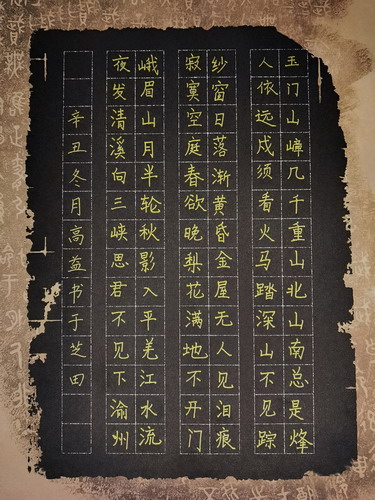 玉门山嶂几千重山北山南总是烽
人依远戍须看火马踏深山不见踪
纱窗日落渐黄昏金屋无人见泪痕
寂寞空庭春欲晚梨花满地不开门
峨眉山月半轮秋影入平羌江水流
夜发清溪向三峡思君不见下渝州
辛丑冬月高益书于芝田